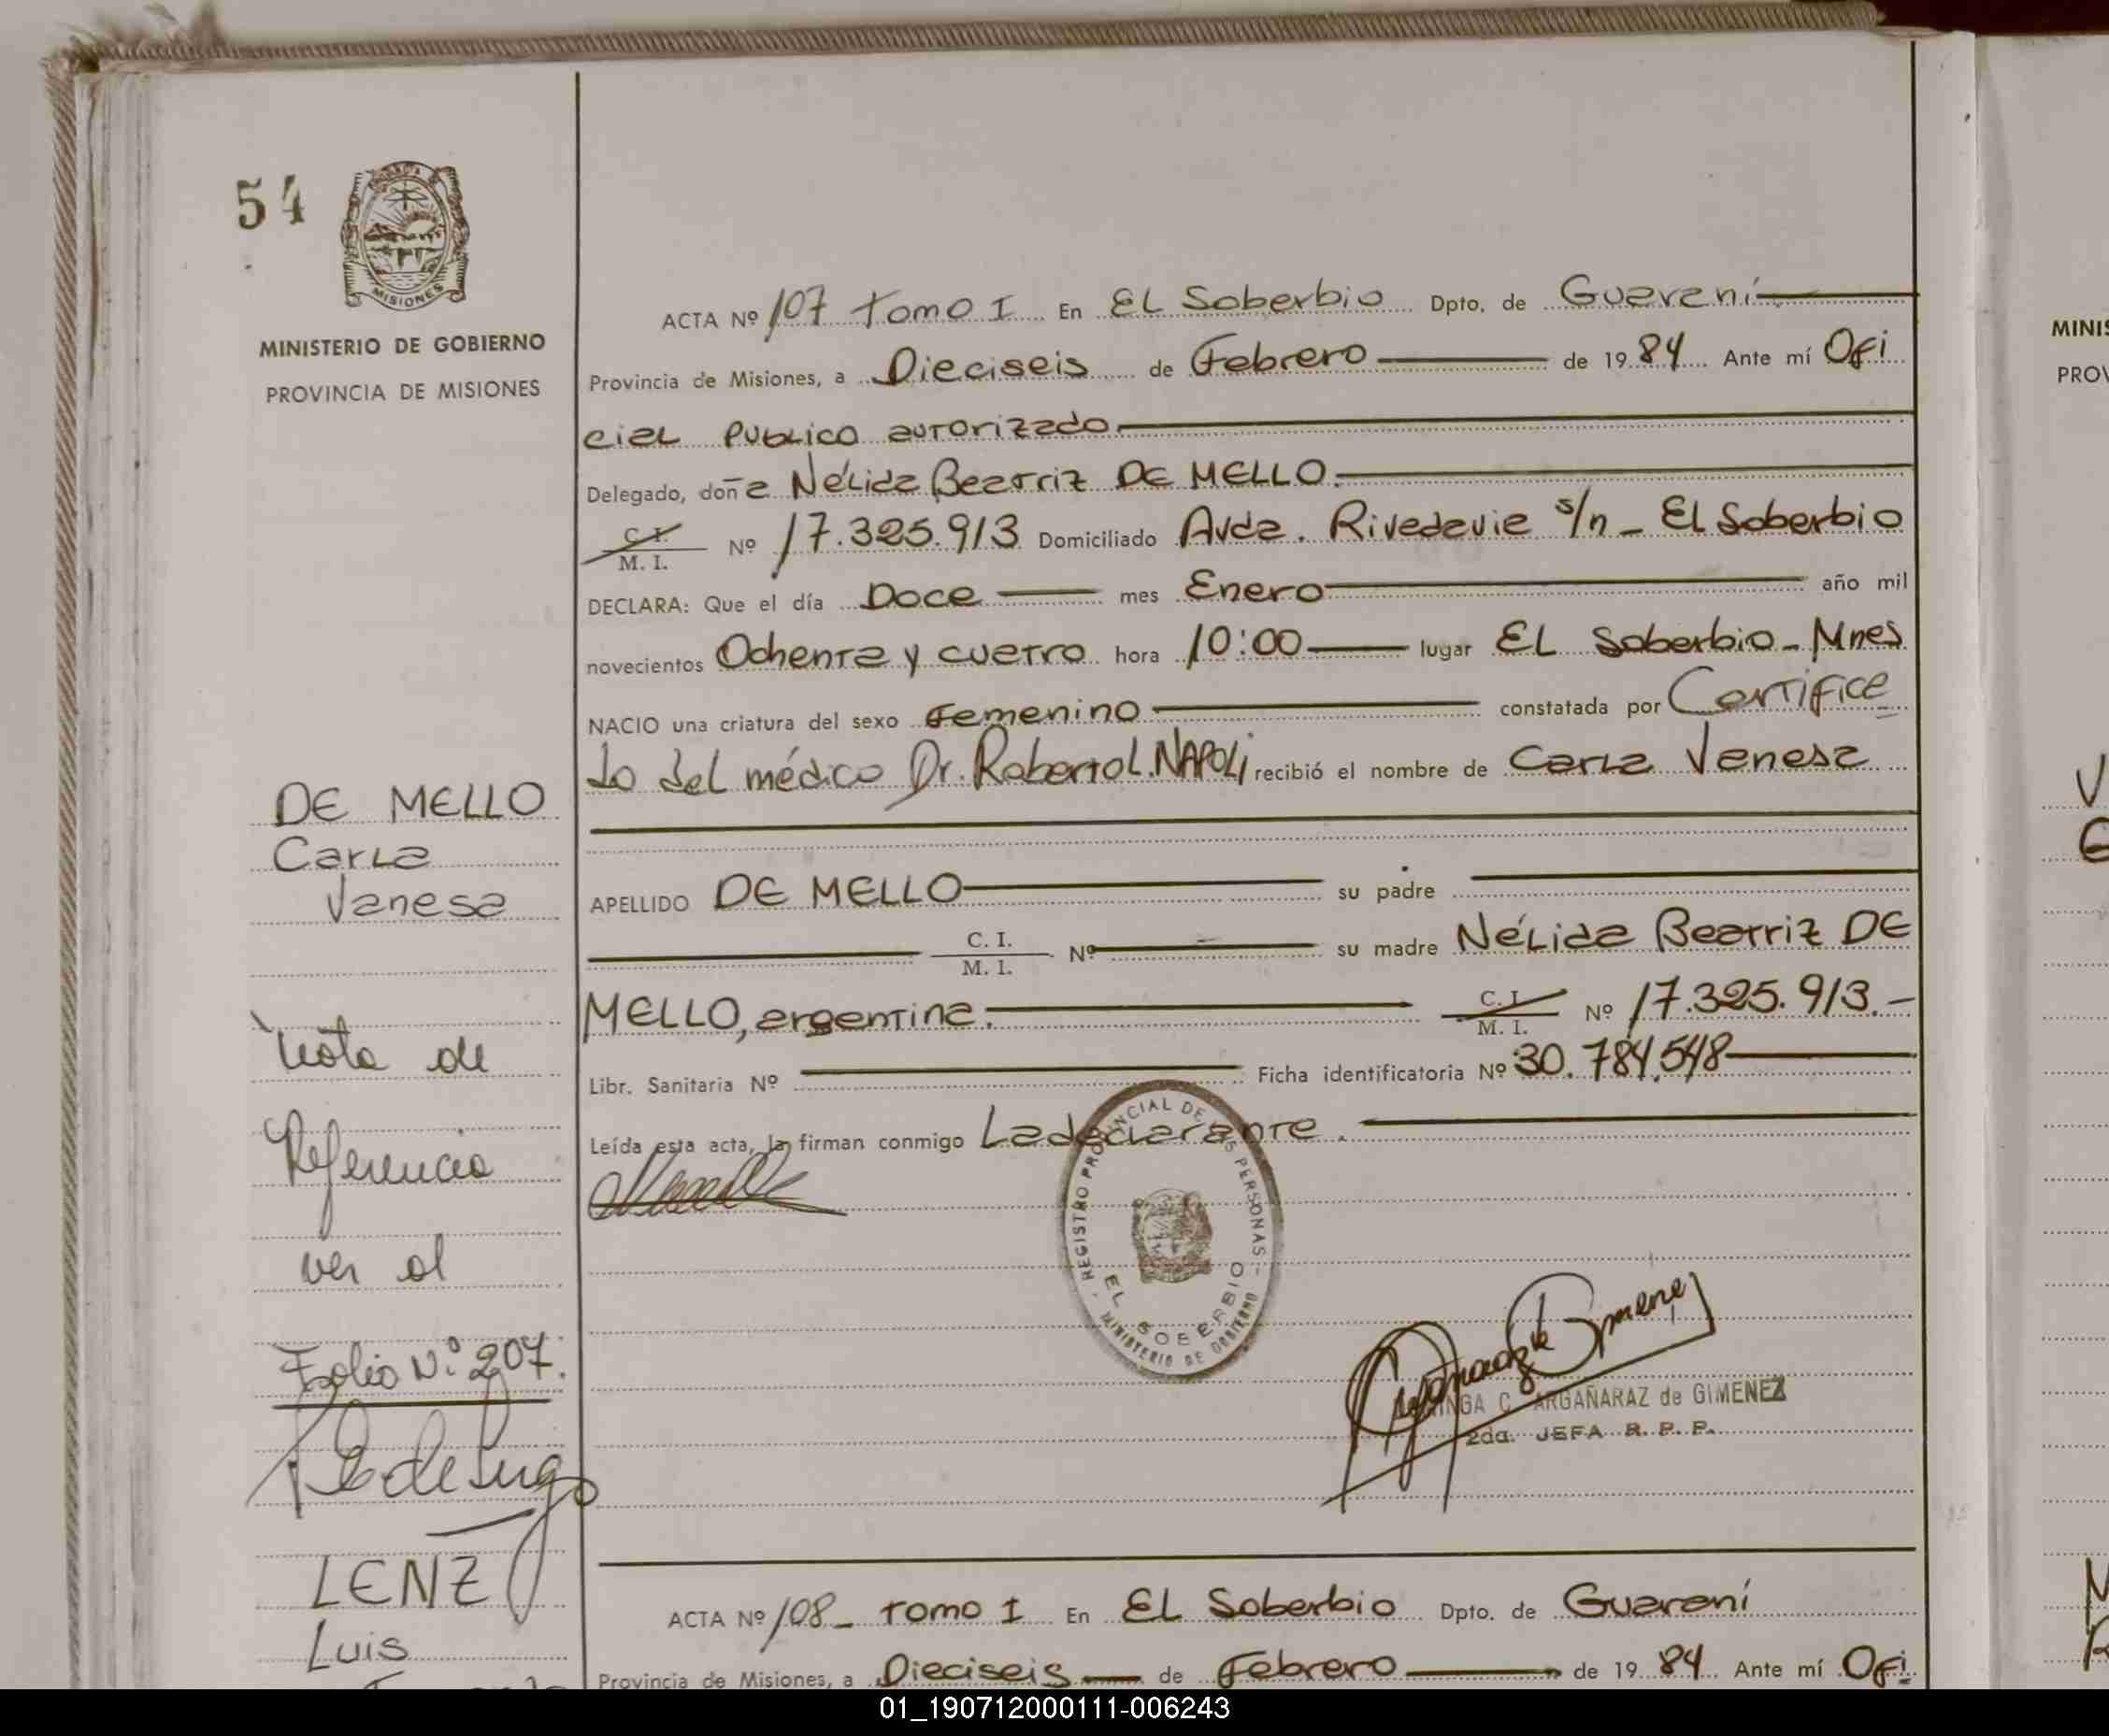 54
MISIONES
MINISTERIO DE GOBIERNO
PROVINCIA DE MISIONES
ACTA Nº 107 Tomo I En EL Soberbio Dpto. de Guaraní
Provincia de Misiones, a Dieciseis de Febrero de 1984 Ante mí Ofi
cial Publico autorizado
Delegado, doña Nélida Beatriz DE MELLO.
C. I.
M. I. Nº 17.325.913 Domiciliado Avda. Rivadavia s/n - El Soberbio
DECLARA: Que el día Doce mes Enero año mil
novecientos Ochenta y cuatro hora 10:00 lugar EL Soberbio - Mnes
NACIO una criatura del sexo Femenino constatada por Certifica
do del médico Dr. Roberto L. NAPOLI recibió el nombre de Carla Vanesa
APELLIDO DE MELLO su padre
C. I.
M. I. Nº su madre Nélida Beatriz DE
MELLO, argentina. C. I.
M. I. Nº 17.325.913.-
Libr. Sanitaria Nº Ficha identificatoria Nº 30.784.548
Leída esta acta, la firman conmigo La declarante.
REGISTRO PROVINCIAL DE LAS PERSONAS - MINISTERIO DE GOBIERNO
EL SOBERBIO
C. ARGAÑARAZ de GIMENEZ
2da. JEFA R. P. P.
DE MELLO
Carla
Vanesa
Nota de
Referencia
ver al
Folio Nº 207.
LENZ
Luis
ACTA Nº 108 - Tomo I En EL Soberbio Dpto. de Guaraní
Provincia de Misiones, a Dieciseis de Febrero de 1984 Ante mí Ofi
MINIS
PROV
V
01_190712000111-006243